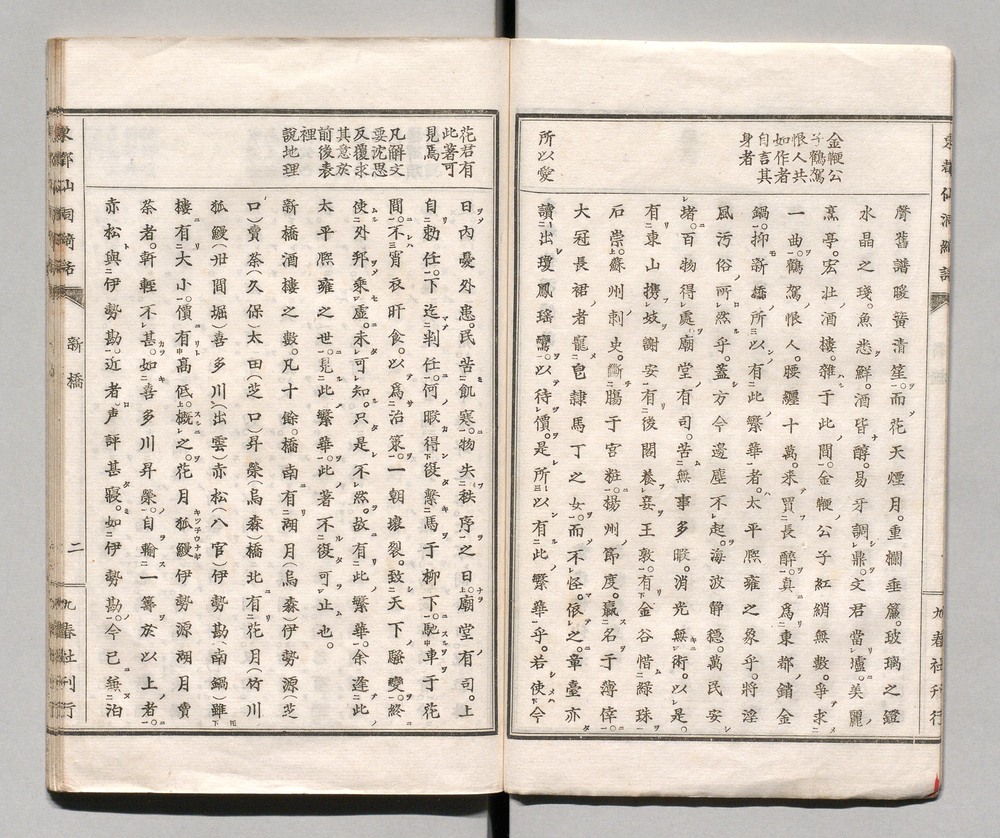 金鞭公
子鶴駕
恨人共
如作者
自言其
身者
所以愛
聲舊譜暖簧清笙。而花天煙月。重欄垂簾。玻璃之鐙
水晶之琖。魚悉鮮。酒皆醇。易牙調鼎。文君當壚。美麗
烹亭。宏壯酒樓。雜于此間。金鞭公子紅綃無數。爭求
一曲。鶴駕恨人。腰纏十萬。來買長醉。真爲東都銷金
鍋。抑新橋所以有此繁華者。太平熈雍之象乎。將淫
風汚俗所然乎。蓋方今邊塵不起。海波靜穩。萬民安
堵。百物得處。廟堂有司。苦無事多暇。消光無術。以是。
有東山携妓謝安。有後閣養妾王敦。有金谷惜綠珠
石崇。蘇州刺史。斷膓于宮粧。揚州節度。贏名于薄倖。
大冠長裙者寵皀隷馬丁之女。而不怪。依之。章臺亦
讀出瓊鳳瑤鸞。以待價。是所以有此繁華乎。若使今
花君有
此著可
見焉
凡解文
要沈思
反覆求
其意於
前後表
裡
說地理
日內憂外患。民苦飢寒。物失秩序之日。廟堂有司。上
自勅任。下迄判任。何暇得復繫馬于柳下。馳車于花
間。不宵衣旰食。以爲治策。一朝壞裂。致天下騷變。終
使外邦乘虛。未可知。只是不然。故有此繁華。余逢此
太平熈雍之世。見此繁華。此著不復可止也。
新橋酒樓之數。凡十餘。橋南有湖月(烏森)伊勢源(芝
口)賣茶(久保)太田(芝口)昇榮(烏森)橋北有花月(竹川
狐鰻(卅間堀)喜多川(出雲)赤松(八官)伊勢勘(南鍋)雖
樓有大小。價有高低。概之。花月狐鰻伊勢源湖月賣
茶者。軒輊不甚。如喜多川昇榮。自輸一籌於以上者。
赤松與伊勢勘。近者声評甚寢。如伊勢勘。今已無泊
新橋
二
九春社刊行